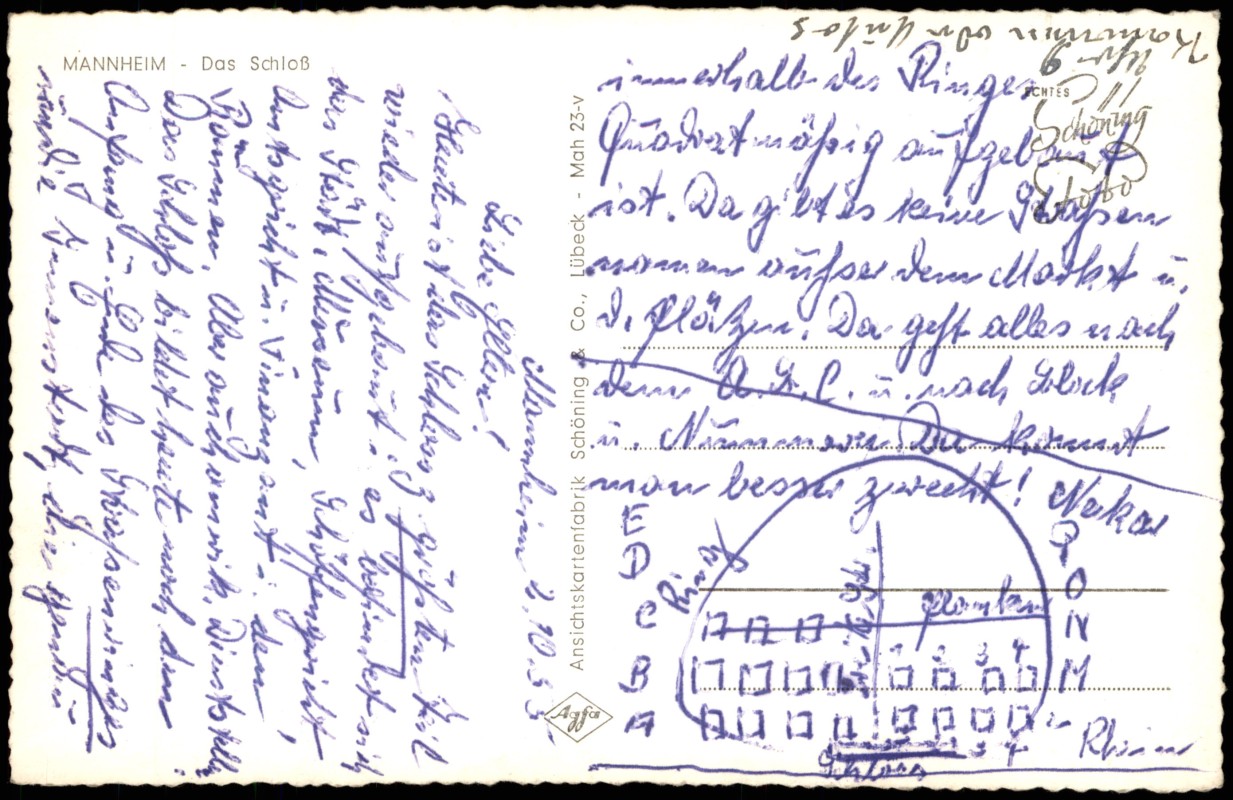 MANNHEIM - Das Schloß
Mannheim 2.10.53
Liebe Eltern!
Heute ist das Schloss z. größten Teil
wieder aufgebaut. es befindet sich
das Städt. Museum, Schöffengericht
Amtsgericht u. Finanzamt i. den
Räumen. Aber auch amerik. Dienststellen
Das Schloß bildet heute noch den
Anfang u. Ende des Straßenringes
um die Innenstadt, die genau
Ansichtskartenfabrik Schöning & Co., Lübeck - Mah 23-v
Agfa
ECHTES
Schöning
Foto
innerhalb des Ringes
Quadratmäßig aufgebaut
ist. Da gibt es keine Straßen
namen außer dem Markt u.
d. Plätzen. Da geht alles nach
dem A.B.C. u. nach Block
u. Nummern Da kommt
man besser zurecht! Nekar
E
D
C
B
A
Ring
Planken
O
N
M
1 2 3 4
Rhein
Schloss